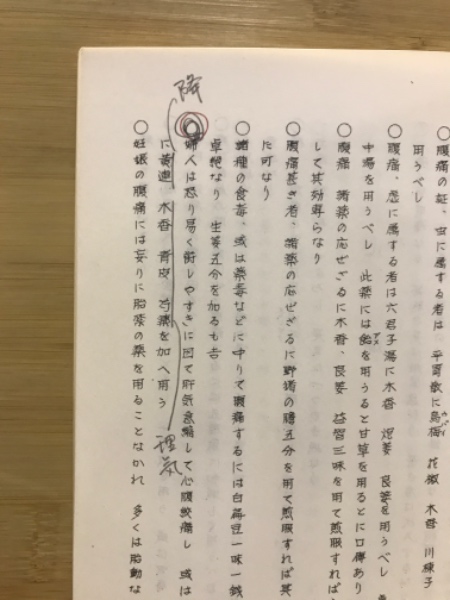 ○腹痛の証、虫に属する者は 平胃散に烏梅 花椒 木香 川楝子
用うべし
○腹痛、虚に属する者は六君子湯に木香 煨姜 良姜を用うべし
中湯を用うべし 此薬には飴を用うると甘草を用ると口傳あり
○腹痛 諸薬の応ぜざるに木香、良姜 益智三味を用て煎服すれば
して其効尋らなり
○腹痛甚き者、諸薬の応ぜざるに野猪の膽五分を用て煎服すれば其
た可なり
○諸種の食毒、或は薬毒などに中りて腹痛するには白扁豆一味一銭
卓絶なり 生姜五分を加るも吉
○婦人は怒り易く衝しやすきに因て肝気急縮して心腹絞痛し 或は
に黄連 木香 青皮 芍薬を加へ用う
○妊娠の腹痛には妄りに胎薬の薬を用ることなかれ 多くは胎動な
降
理氣